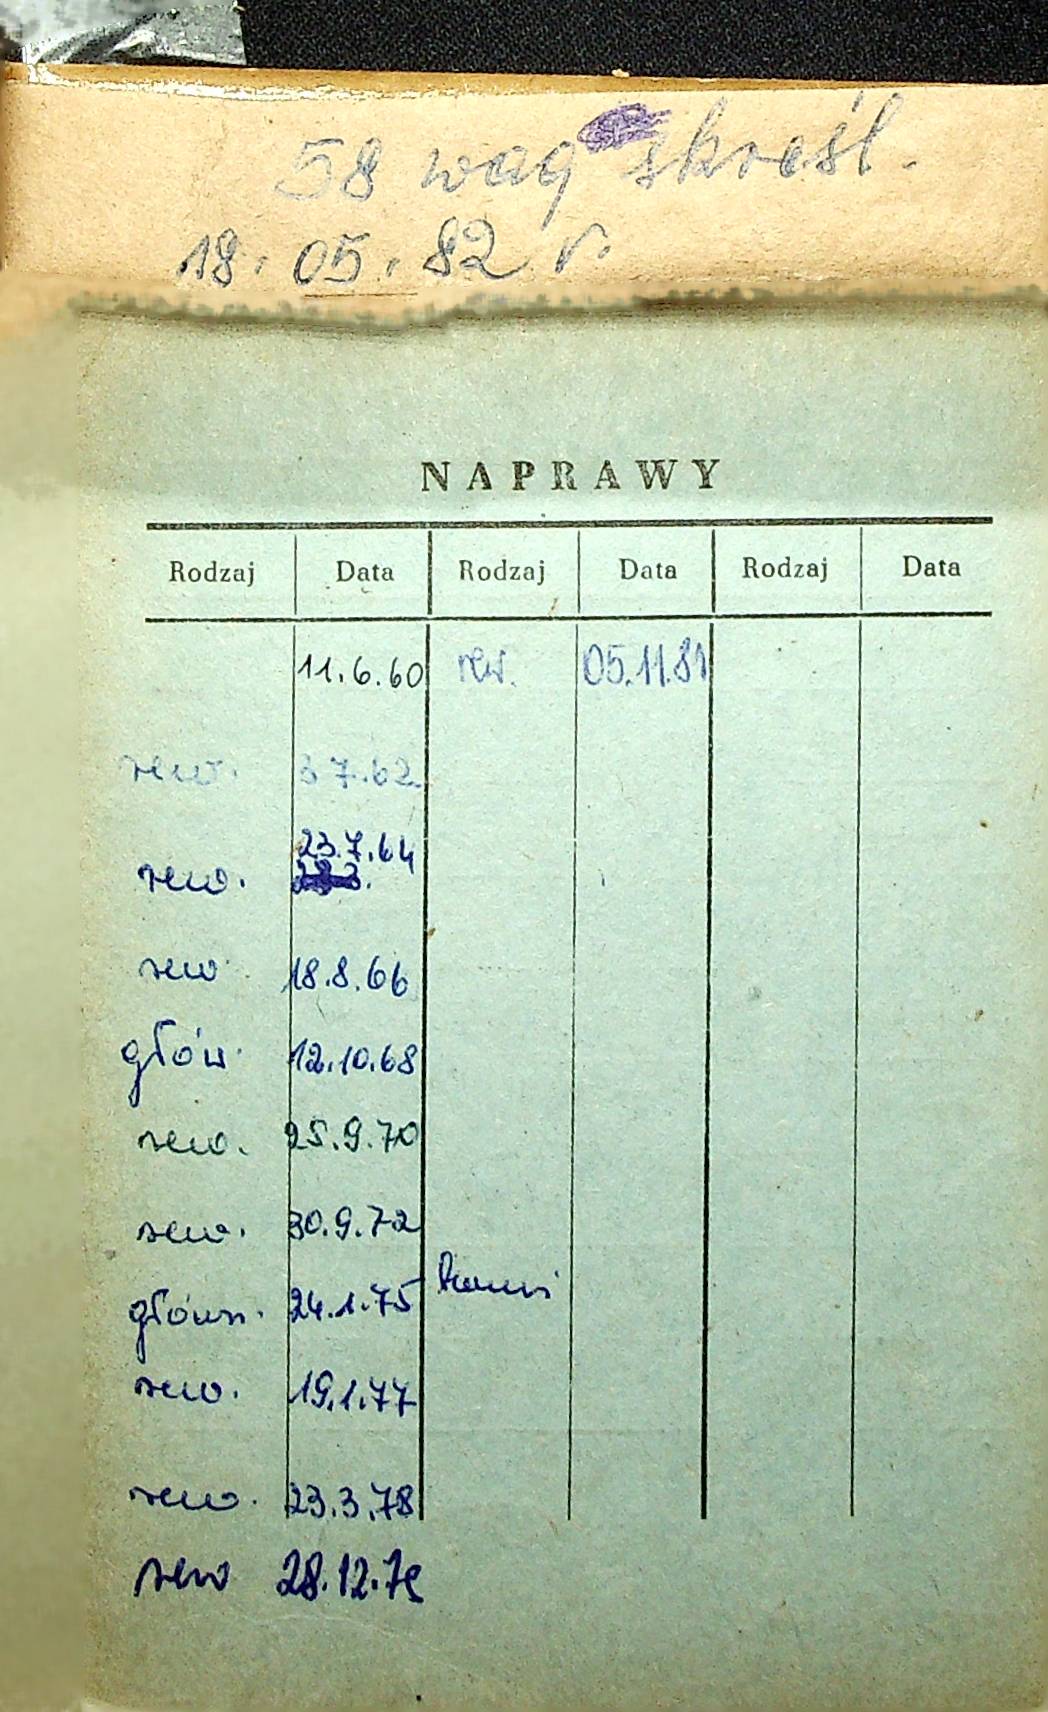 58 wag skreśl.
18.05.82 r.
NAPRAWY
Rodzaj Data Rodzaj Data Rodzaj Data
11.6.60 rew. 05.11.81
rew. 3 7.62
23.7.64
rew.
rew 18.8.66
głów. 12.10.68
rew. 25.9.70
rew. 30.9.72
główn. 24.1.75
rew. 19.1.77
rew. 23.3.78
rew 28.12.79